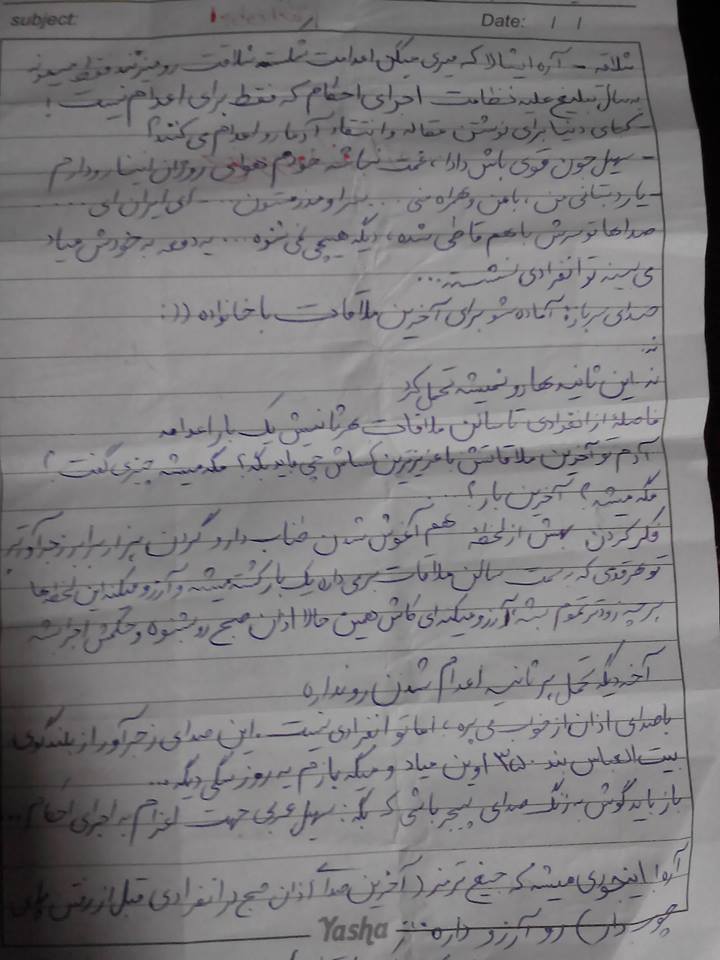 subject:
Date: / /
شلاقه - آره ایشالا که میری میگن اعدامت شلاقت رو میزنند فقط
یه سال تبلیغ علیه نظامت اجرای احکام که فقط برای اعدام نیست!
- کجای دنیا برای نوشتن مقاله و انتقاد آدما رو اعدام می کنند؟
- سهیل جون قوی باش دادا، غمت نباشه خودم هوای روژان اینا رو دارم
- یار دبستانی من، با من و همراه منی ... ... ای ایران ای ....
صداها تو سرش باهم قاطی شده، دیگه هیچی نمی شنوه ... یه دفعه به خودش میاد
می بینه تو انفرادی نشسته...
صدای سربازه آماده شو برای آخرین ملاقات با خانواده ((:
نه
نه این ثانیه ها رو نمیشه تحمل کرد
فاصله از انفرادی تا سالن ملاقات هر ثانیش یک بار اعدامه
آدم تو آخرین ملاقاتش با عزیزترین کساش چی باید بگه؟ مگه میشه چیزی گفت؟
مگه میشه؟ آخرین بار؟ ...
فکر کردن بهش از لحظه هم آغوش شدن طناب دار و گردن هزار برابر زجرآورتره
تو هر قدمی که به سمت سالن ملاقات برمی داره یک بار کشته میشه و آرزو میکنه این لحظه ها
هر چه زودتر تموم بشه، آرزو میکنه ای کاش همین حالا اذان صبح رو بشنوه و حکمش اجرا بشه
آخه دیگه تحمل هر ثانیه اعدام شدن رو نداره
با صدای اذان از خواب می پره، اما تو انفرادی نیست. این صدای زجرآور از بلندگوی
بیت العباس بند ۳۵۰ اوین میاد و میگه بازم یه روز سگی دیگه...
باز باید گوش به زنگ صدای پیجر باشی که بگه: سهیل عربی جهت اعزام به اجرای احکام...
آره! اینجوری میشه که جیغ ترمز (آخرین صدای اذان صبح در انفرادی قبل از رفتن پای
چوبه دار) رو آرزو داره
Yasha